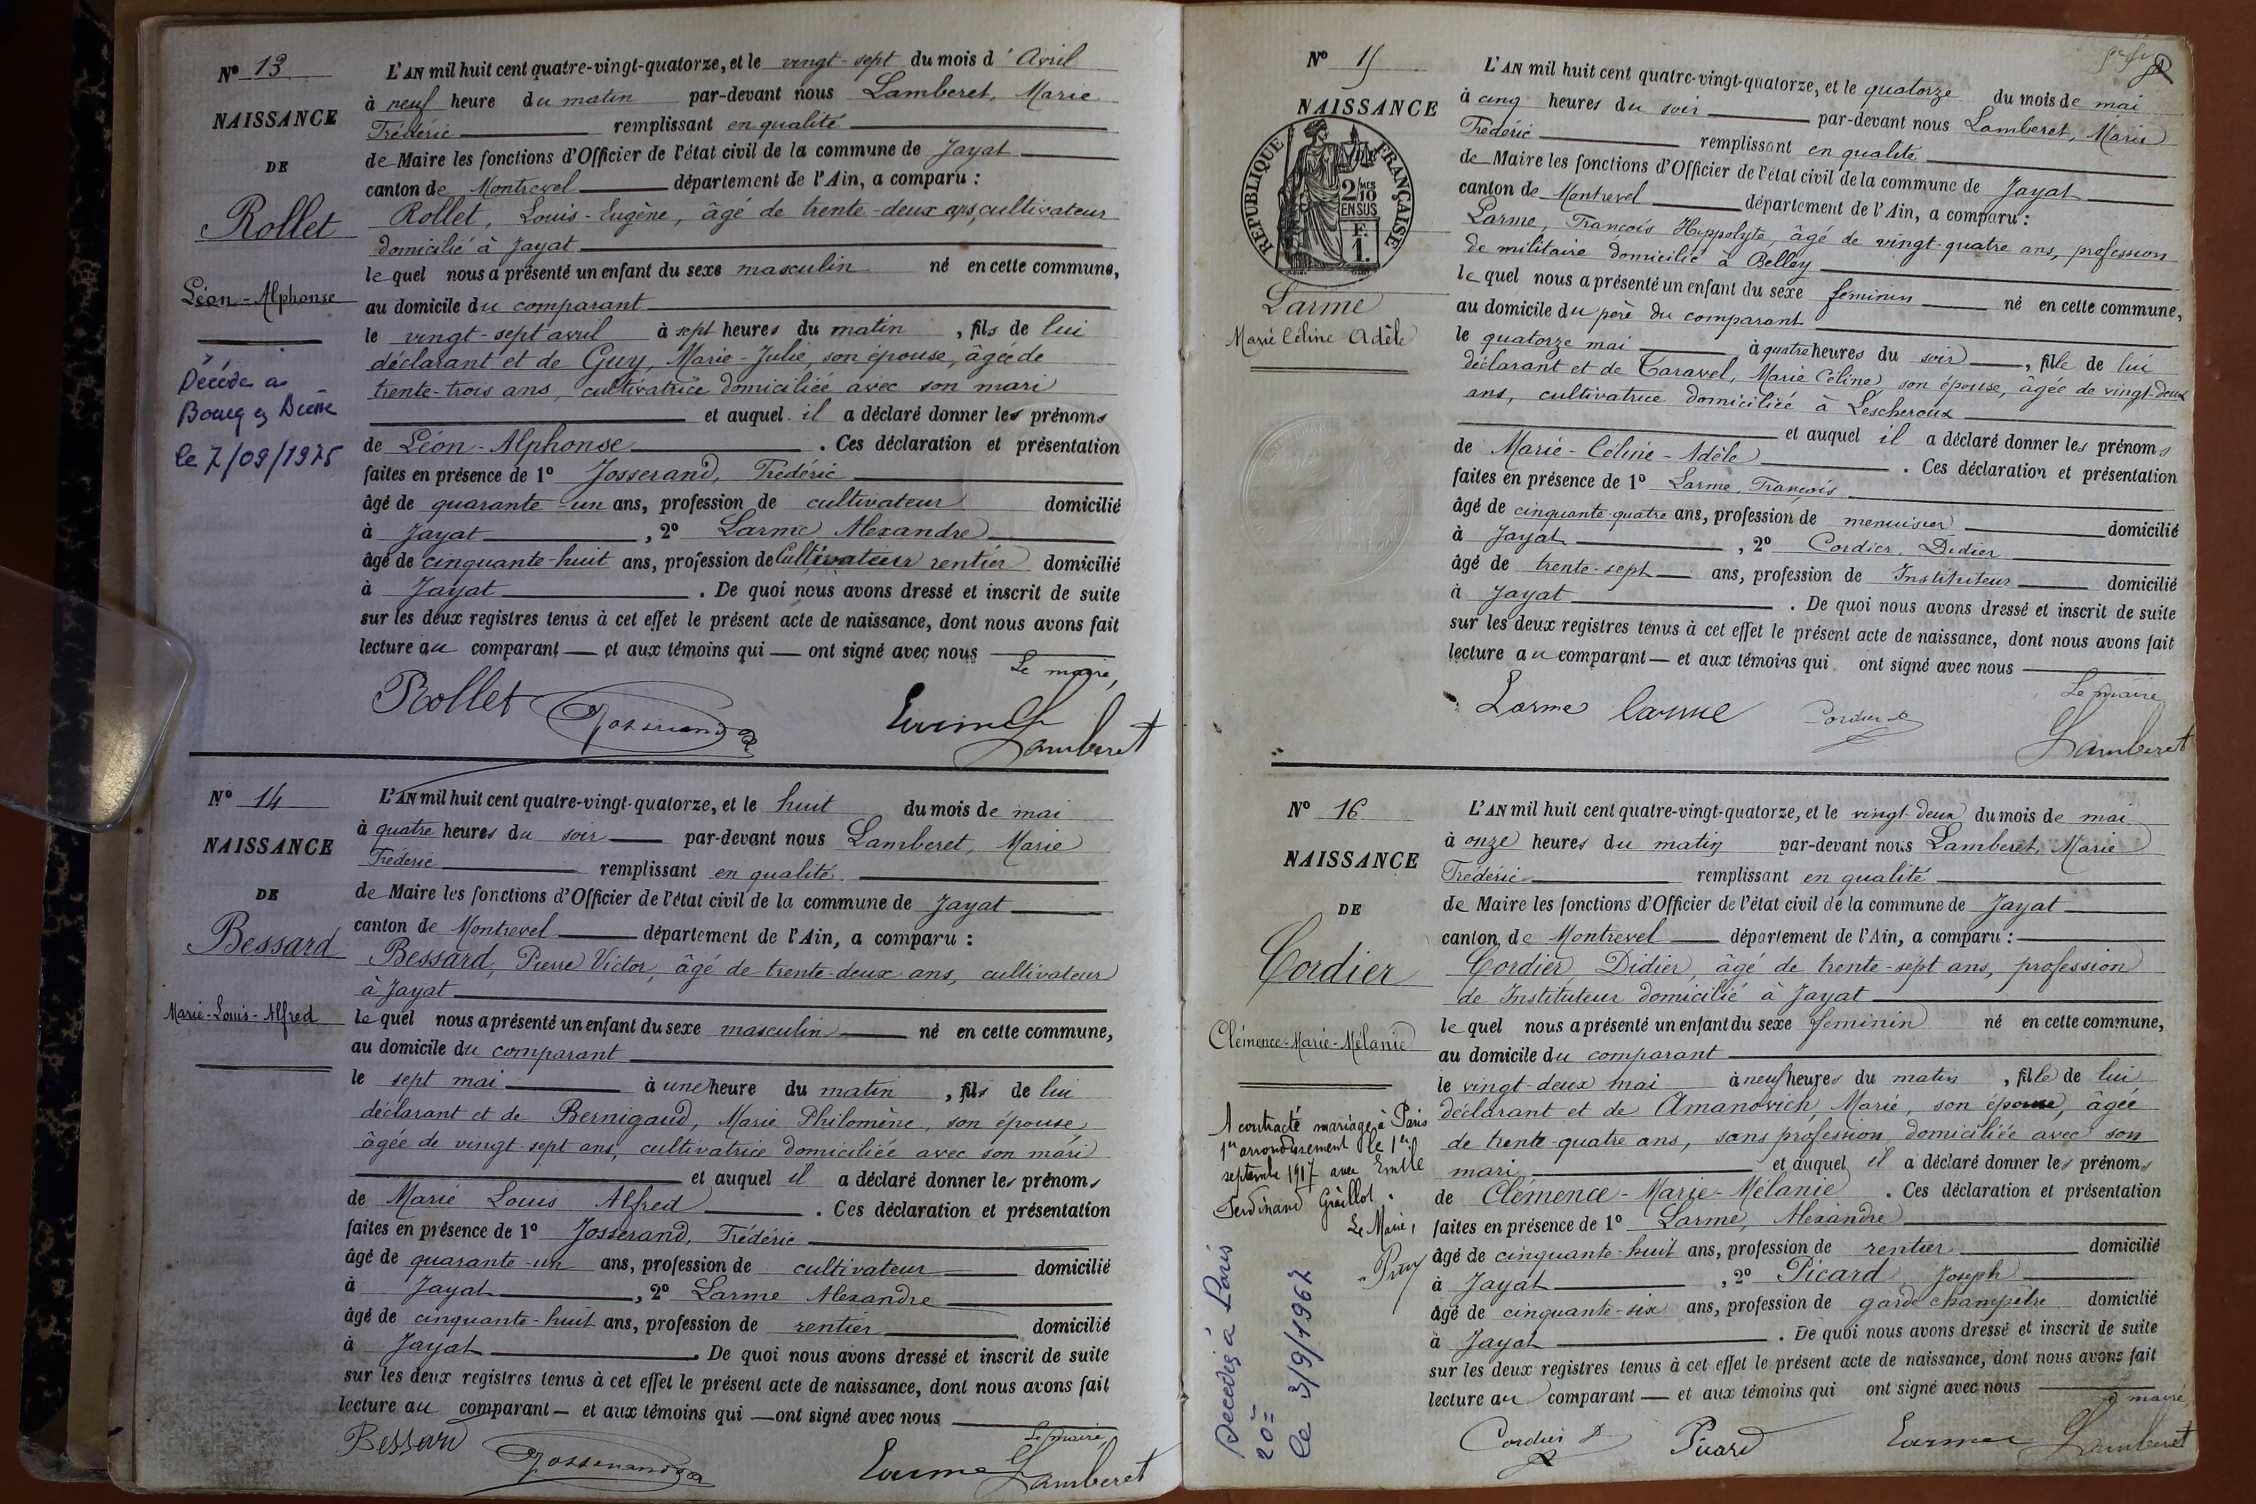 N° 13
NAISSANCE
DE
Rollet
Léon-Alphonse
Décédé à
Bourg en Bresse
le 7/09/1975
L'AN mil huit cent quatre-vingt-quatorze, et le vingt-sept du mois d'Avril
à neuf heure du matin par-devant nous Lamberet, Marie
Frédéric remplissant en qualité
de Maire les fonctions d'Officier de l'état civil de la commune de Jayat
canton de Montrevel département de l'Ain, a comparu :
Rollet, Louis-Eugène, âgé de trente-deux ans, cultivateur
domicilié à Jayat
lequel nous a présenté un enfant du sexe masculin né en cette commune,
au domicile du comparant
le vingt-sept avril à sept heures du matin, fils de lui
déclarant et de Guy, Marie-Julie, son épouse, âgée de
trente-trois ans, cultivatrice domiciliée avec son mari
et auquel il a déclaré donner les prénoms
de Léon-Alphonse. Ces déclaration et présentation
faites en présence de 1° Josserand, Frédéric
âgé de quarante-un ans, profession de cultivateur domicilié
à Jayat, 2° Larme Alexandre
âgé de cinquante-huit ans, profession de Cultivateur rentier domicilié
à Jayat. De quoi nous avons dressé et inscrit de suite
sur les deux registres tenus à cet effet le présent acte de naissance, dont nous avons fait
lecture au comparant et aux témoins qui ont signé avec nous
Le maire,
Rollet Josserand Larme Lamberet
N° 14
NAISSANCE
DE
Bessard
Marie-Louis-Alfred
L'AN mil huit cent quatre-vingt-quatorze, et le huit du mois de mai
à quatre heures du soir par-devant nous Lamberet, Marie
Frédéric remplissant en qualité
de Maire les fonctions d'Officier de l'état civil de la commune de Jayat
canton de Montrevel département de l'Ain, a comparu :
Bessard, Pierre Victor, âgé de trente-deux ans, cultivateur
à Jayat
lequel nous a présenté un enfant du sexe masculin né en cette commune,
au domicile du comparant
le sept mai à une heure du matin, fils de lui
déclarant et de Bernigaud, Marie Philomène, son épouse
âgée de vingt-sept ans, cultivatrice domiciliée avec son mari
et auquel il a déclaré donner les prénoms
de Marie Louis Alfred. Ces déclaration et présentation
faites en présence de 1° Josserand, Frédéric
âgé de quarante-un ans, profession de cultivateur domicilié
à Jayat, 2° Larme Alexandre
âgé de cinquante-huit ans, profession de rentier domicilié
à Jayat. De quoi nous avons dressé et inscrit de suite
sur les deux registres tenus à cet effet le présent acte de naissance, dont nous avons fait
lecture au comparant et aux témoins qui ont signé avec nous
Le maire,
Bessard Josserand Larme Lamberet
N° 15
NAISSANCE
RÉPUBLIQUE FRANÇAISE
2/10 MES
EN SUS
F.
1.
Larme
Marie Céline Adèle
L'AN mil huit cent quatre-vingt-quatorze, et le quatorze du mois de mai
à cinq heures du soir par-devant nous Lamberet, Marie
Frédéric remplissant en qualité
de Maire les fonctions d'Officier de l'état civil de la commune de Jayat
canton de Montrevel département de l'Ain, a comparu :
Larme, François Hippolyte, âgé de vingt-quatre ans, profession
de militaire domicilié à Belley
lequel nous a présenté un enfant du sexe féminin né en cette commune,
au domicile du père du comparant
le quatorze mai à quatre heures du soir, fille de lui
déclarant et de Taravel, Marie Céline, son épouse, âgée de vingt-deux
ans, cultivatrice domiciliée à Lescheroux
et auquel il a déclaré donner les prénoms
de Marie-Céline-Adèle. Ces déclaration et présentation
faites en présence de 1° Larme, François
âgé de cinquante-quatre ans, profession de menuisier domicilié
à Jayat, 2° Cordier, Didier
âgé de trente-sept ans, profession de Instituteur domicilié
à Jayat. De quoi nous avons dressé et inscrit de suite
sur les deux registres tenus à cet effet le présent acte de naissance, dont nous avons fait
lecture au comparant et aux témoins qui ont signé avec nous
Le maire
Larme Larme Cordier Lamberet
N° 16
NAISSANCE
DE
Cordier
Clémence-Marie-Mélanie
A contracté mariage à Paris
1er arrondissement le 1er
septembre 1917 avec Emile
Ferdinand Graillot.
Le Maire,
Décédée à Paris
20e
le 3/9/1962
L'AN mil huit cent quatre-vingt-quatorze, et le vingt-deux du mois de mai
à onze heures du matin par-devant nous Lamberet, Marie
Frédéric remplissant en qualité
de Maire les fonctions d'Officier de l'état civil de la commune de Jayat
canton de Montrevel département de l'Ain, a comparu :
Cordier, Didier, âgé de trente-sept ans, profession
de Instituteur domicilié à Jayat
lequel nous a présenté un enfant du sexe féminin né en cette commune,
au domicile du comparant
le vingt-deux mai à neuf heures du matin, fille de lui
déclarant et de Amanovich, Marie, son épouse, âgée
de trente-quatre ans, sans profession, domiciliée avec son
mari et auquel il a déclaré donner les prénoms
de Clémence-Marie-Mélanie. Ces déclaration et présentation
faites en présence de 1° Larme, Alexandre
âgé de cinquante-huit ans, profession de rentier domicilié
à Jayat, 2° Picard Joseph
âgé de cinquante-six ans, profession de garde champêtre domicilié
à Jayat. De quoi nous avons dressé et inscrit de suite
sur les deux registres tenus à cet effet le présent acte de naissance, dont nous avons fait
lecture au comparant et aux témoins qui ont signé avec nous
maire
Cordier Picard Larme Lamberet